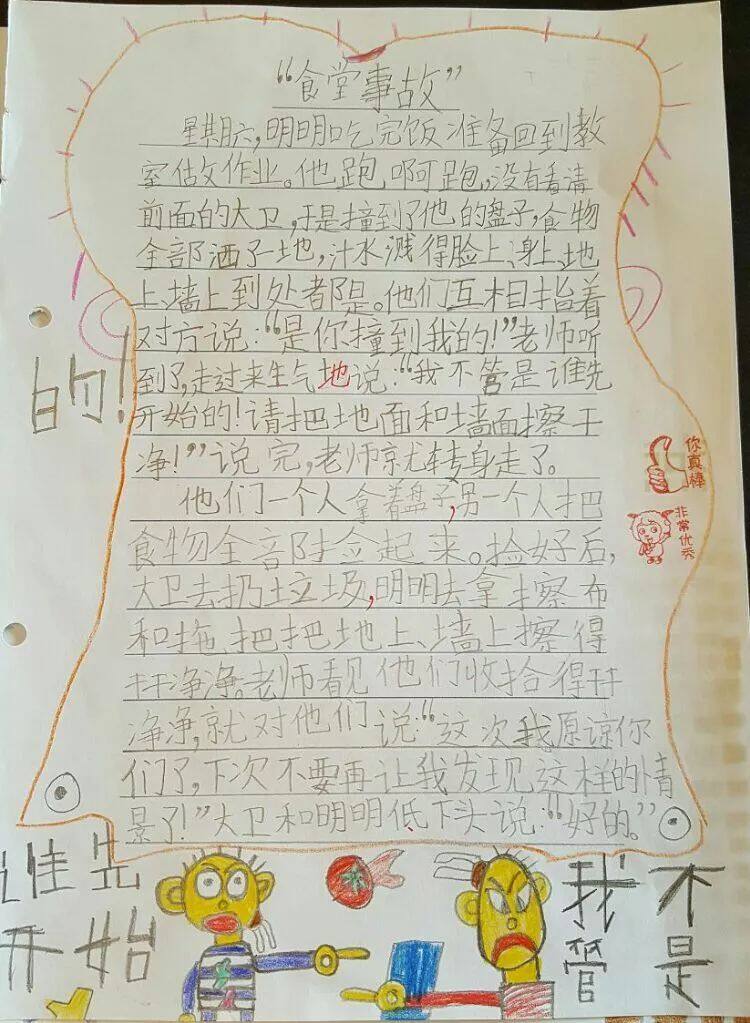 “食堂事故”
星期六,明明吃完饭准备回到教
室做作业。他跑啊跑,没有看清
前面的大卫,于是撞到了他的盘子,食物
全部洒了一地,汁水溅得脸上、身上、地
上、墙上到处都是。他们互相指着
对方说:“是你撞到我的!”老师听
到了,走过来生气地说:“我不管是谁先
开始的!请把地面和墙面擦干
净!”说完,老师就转身走了。
他们一个人拿着盘子,另一个人把
食物全部捡起来。捡好后,
大卫去扔垃圾,明明去拿擦布
和拖把把地上、墙上擦得
干干净净。老师看见他们收拾得干干
净净,就对他们说:“这次我原谅你
们了,下次不要再让我发现这样的情
景了!”大卫和明明低下头说:“好的。”
你真棒
非常优秀
我不
管是
谁先
开始
的!